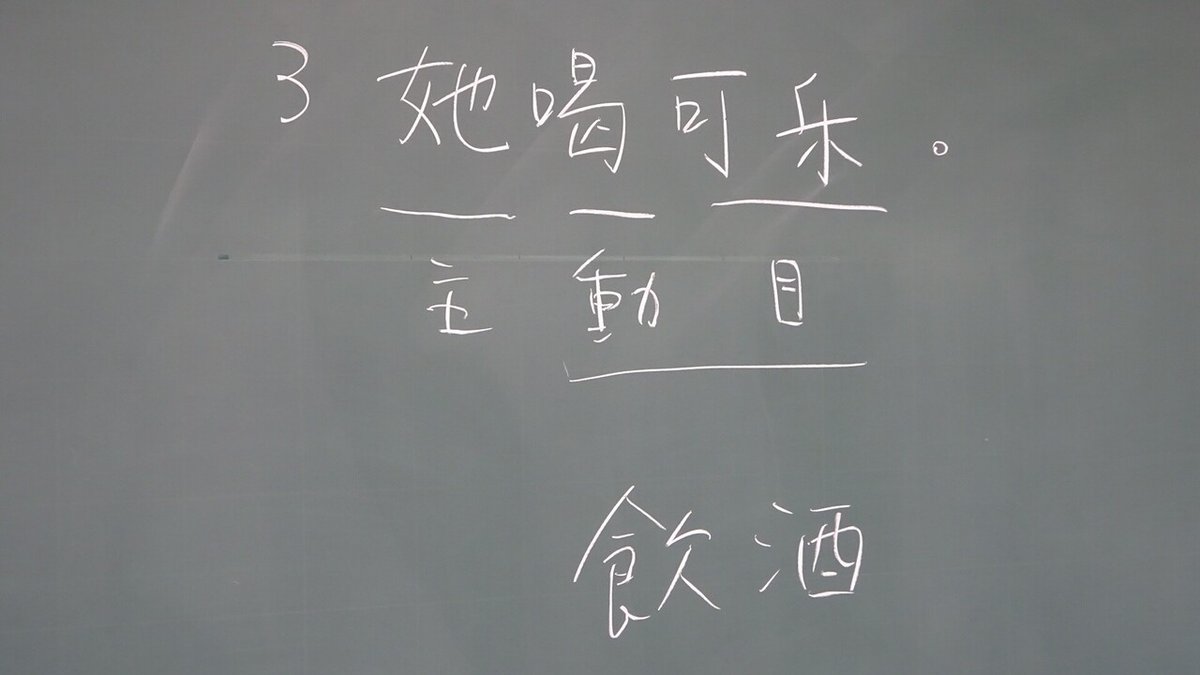 3 她喝可乐。
主 動 目
飲酒